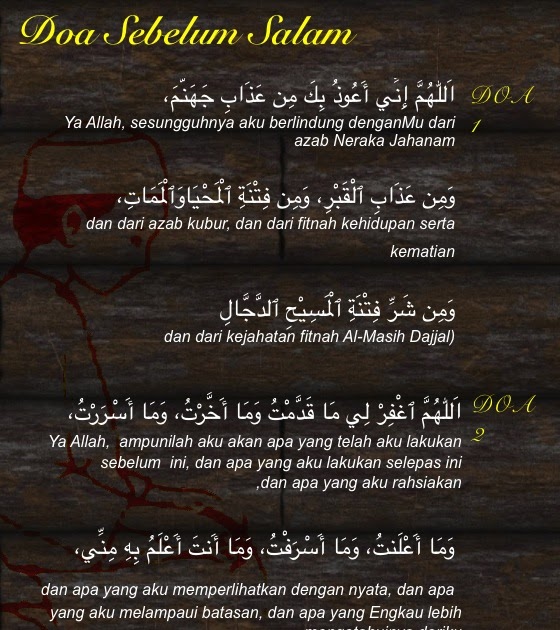 Doa Sebelum Salam
اَللّٰهُمَّ إِنِّي أَعُوذُ بِكَ مِن عَذَابِ جَهَنَّمَ،
DOA 1
Ya Allah, sesungguhnya aku berlindung denganMu dari
azab Neraka Jahanam
وَمِن عَذَابِ ٱلْقَبْرِ، وَمِن فِتْنَةِ ٱلْمَحْيَاوَٱلْمَمَاتِ،
dan dari azab kubur, dan dari fitnah kehidupan serta
kematian
وَمِن شَرِّ فِتْنَةِ ٱلْمَسِيْحِ ٱلدَّجَّالِ
dan dari kejahatan fitnah Al-Masih Dajjal)
اَللّٰهُمَّ ٱغْفِرْ لِي مَا قَدَّمْتُ وَمَا أَخَّرْتُ، وَمَا أَسْرَرْتُ،
DOA 2
Ya Allah, ampunilah aku akan apa yang telah aku lakukan
sebelum ini, dan apa yang aku lakukan selepas ini
,dan apa yang aku rahsiakan
وَمَا أَعْلَنتُ، وَمَا أَسْرَفْتُ، وَمَا أَنتَ أَعْلَمُ بِهِ مِنِّي،
dan apa yang aku memperlihatkan dengan nyata, dan apa
yang aku melampaui batasan, dan apa yang Engkau lebih